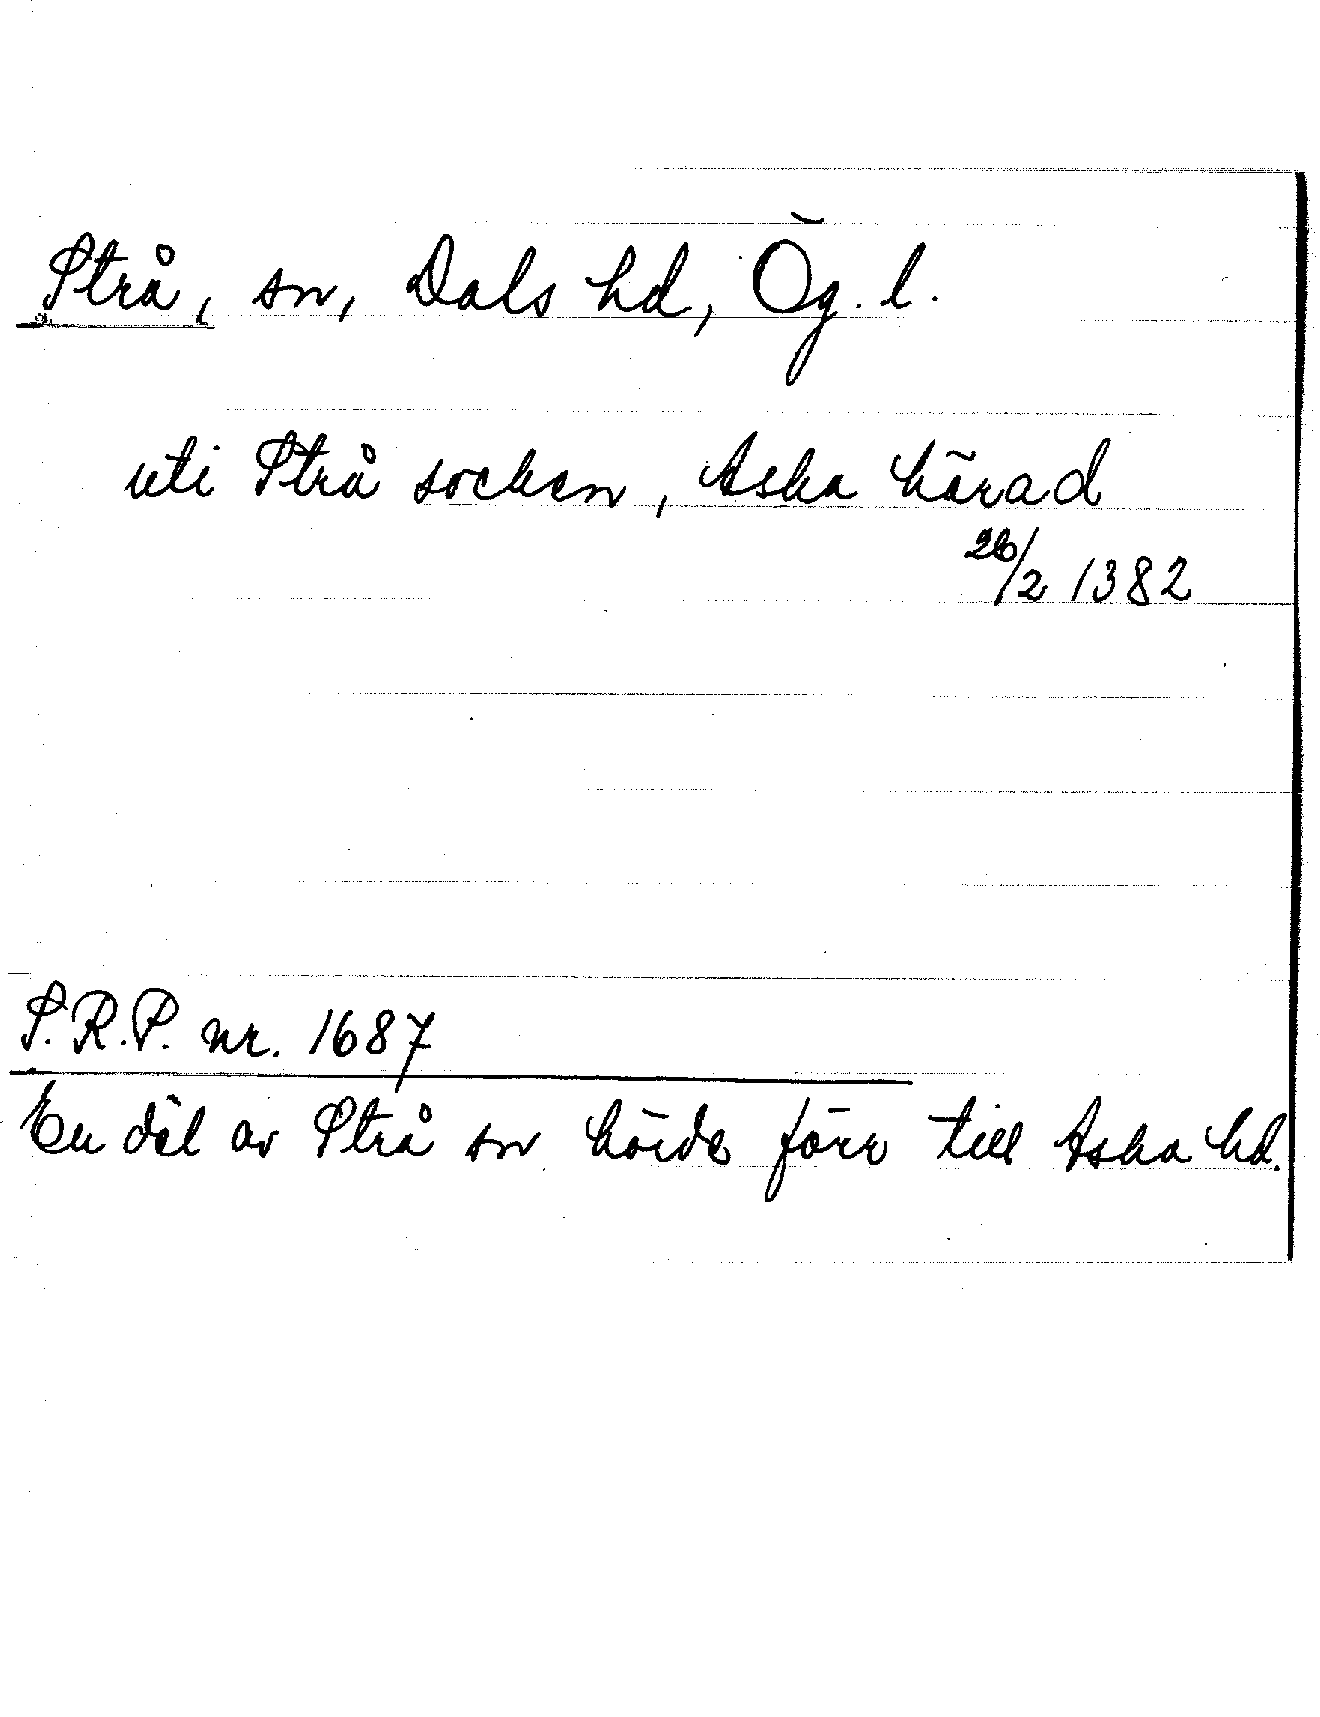 Strå, sn, Dals hd, Ög. l.
uti Strå socken, Aska härad
26/2 1382
S.R.P. nr. 1687
En del av Strå sn hörde förr till Aska hd.